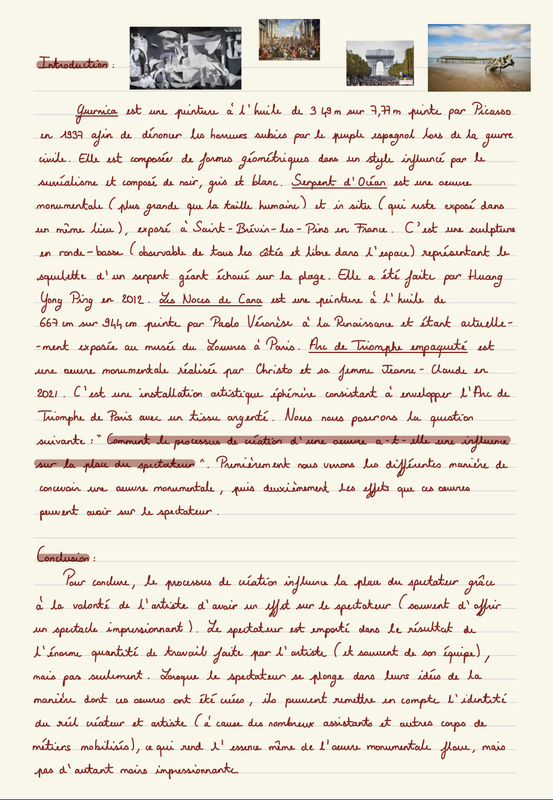 Introduction :
Guernica est une peinture à l'huile de 3 49 m sur 7,77 m peinte par Picasso
en 1937 afin de dénoncer les horreurs subies par le peuple espagnol lors de la guerre
civile. Elle est composée de formes géométriques dans un style influencé par le
surréalisme et composé de noir, gris et blanc. Serpent d'Océan est une oeuvre
monumentale (plus grande que la taille humaine) et in situ (qui reste exposé dans
un même lieu), exposé à Saint-Brévin-les-Pins en France. C'est une sculpture
en ronde-basse (observable de tous les côtés et libre dans l'espace) représentant le
squelette d'un serpent géant échoué sur la plage. Elle a été faite par Huang
Yong Ping en 2012. Les Noces de Cana est une peinture à l'huile de
667 cm sur 944 cm peinte par Paolo Véronèse à la Renaissance et étant actuelle-
-ment exposée au musée du Louvres à Paris. Arc de Triomphe empaqueté est
une oeuvre monumentale réalisée par Christo et sa femme Jeanne-Claude en
2021. C'est une installation artistique éphémère consistant à envelopper l'Arc de
Triomphe de Paris avec un tissu argenté. Nous nous poserons la question
suivante : " Comment le processus de création d'une oeuvre a-t-elle une influence
sur la place du spectateur ". Premièrement nous verrons les différentes manière de
concevoir une oeuvre monumentale, puis deuxièmement les effets que ces oeuvres
peuvent avoir sur le spectateur.
Conclusion :
Pour conclure, le processus de création influence la place du spectateur grâce
à la volonté de l'artiste d'avoir un effet sur le spectateur (souvent d'offrir
un spectacle impressionnant). Le spectateur est emporté dans le résultat de
l'énorme quantité de travail faite par l'artiste (et souvent de son équipe),
mais pas seulement. Lorsque le spectateur se plonge dans leurs idées de la
manière dont ces oeuvres ont été crées, ils peuvent remettre en compte l'identité
du réel créateur et artiste (à cause des nombreux assistants et autres corps de
métiers mobilisés), ce qui rend l'essence même de l'oeuvre monumentale floue, mais
pas d'autant moins impressionnante.